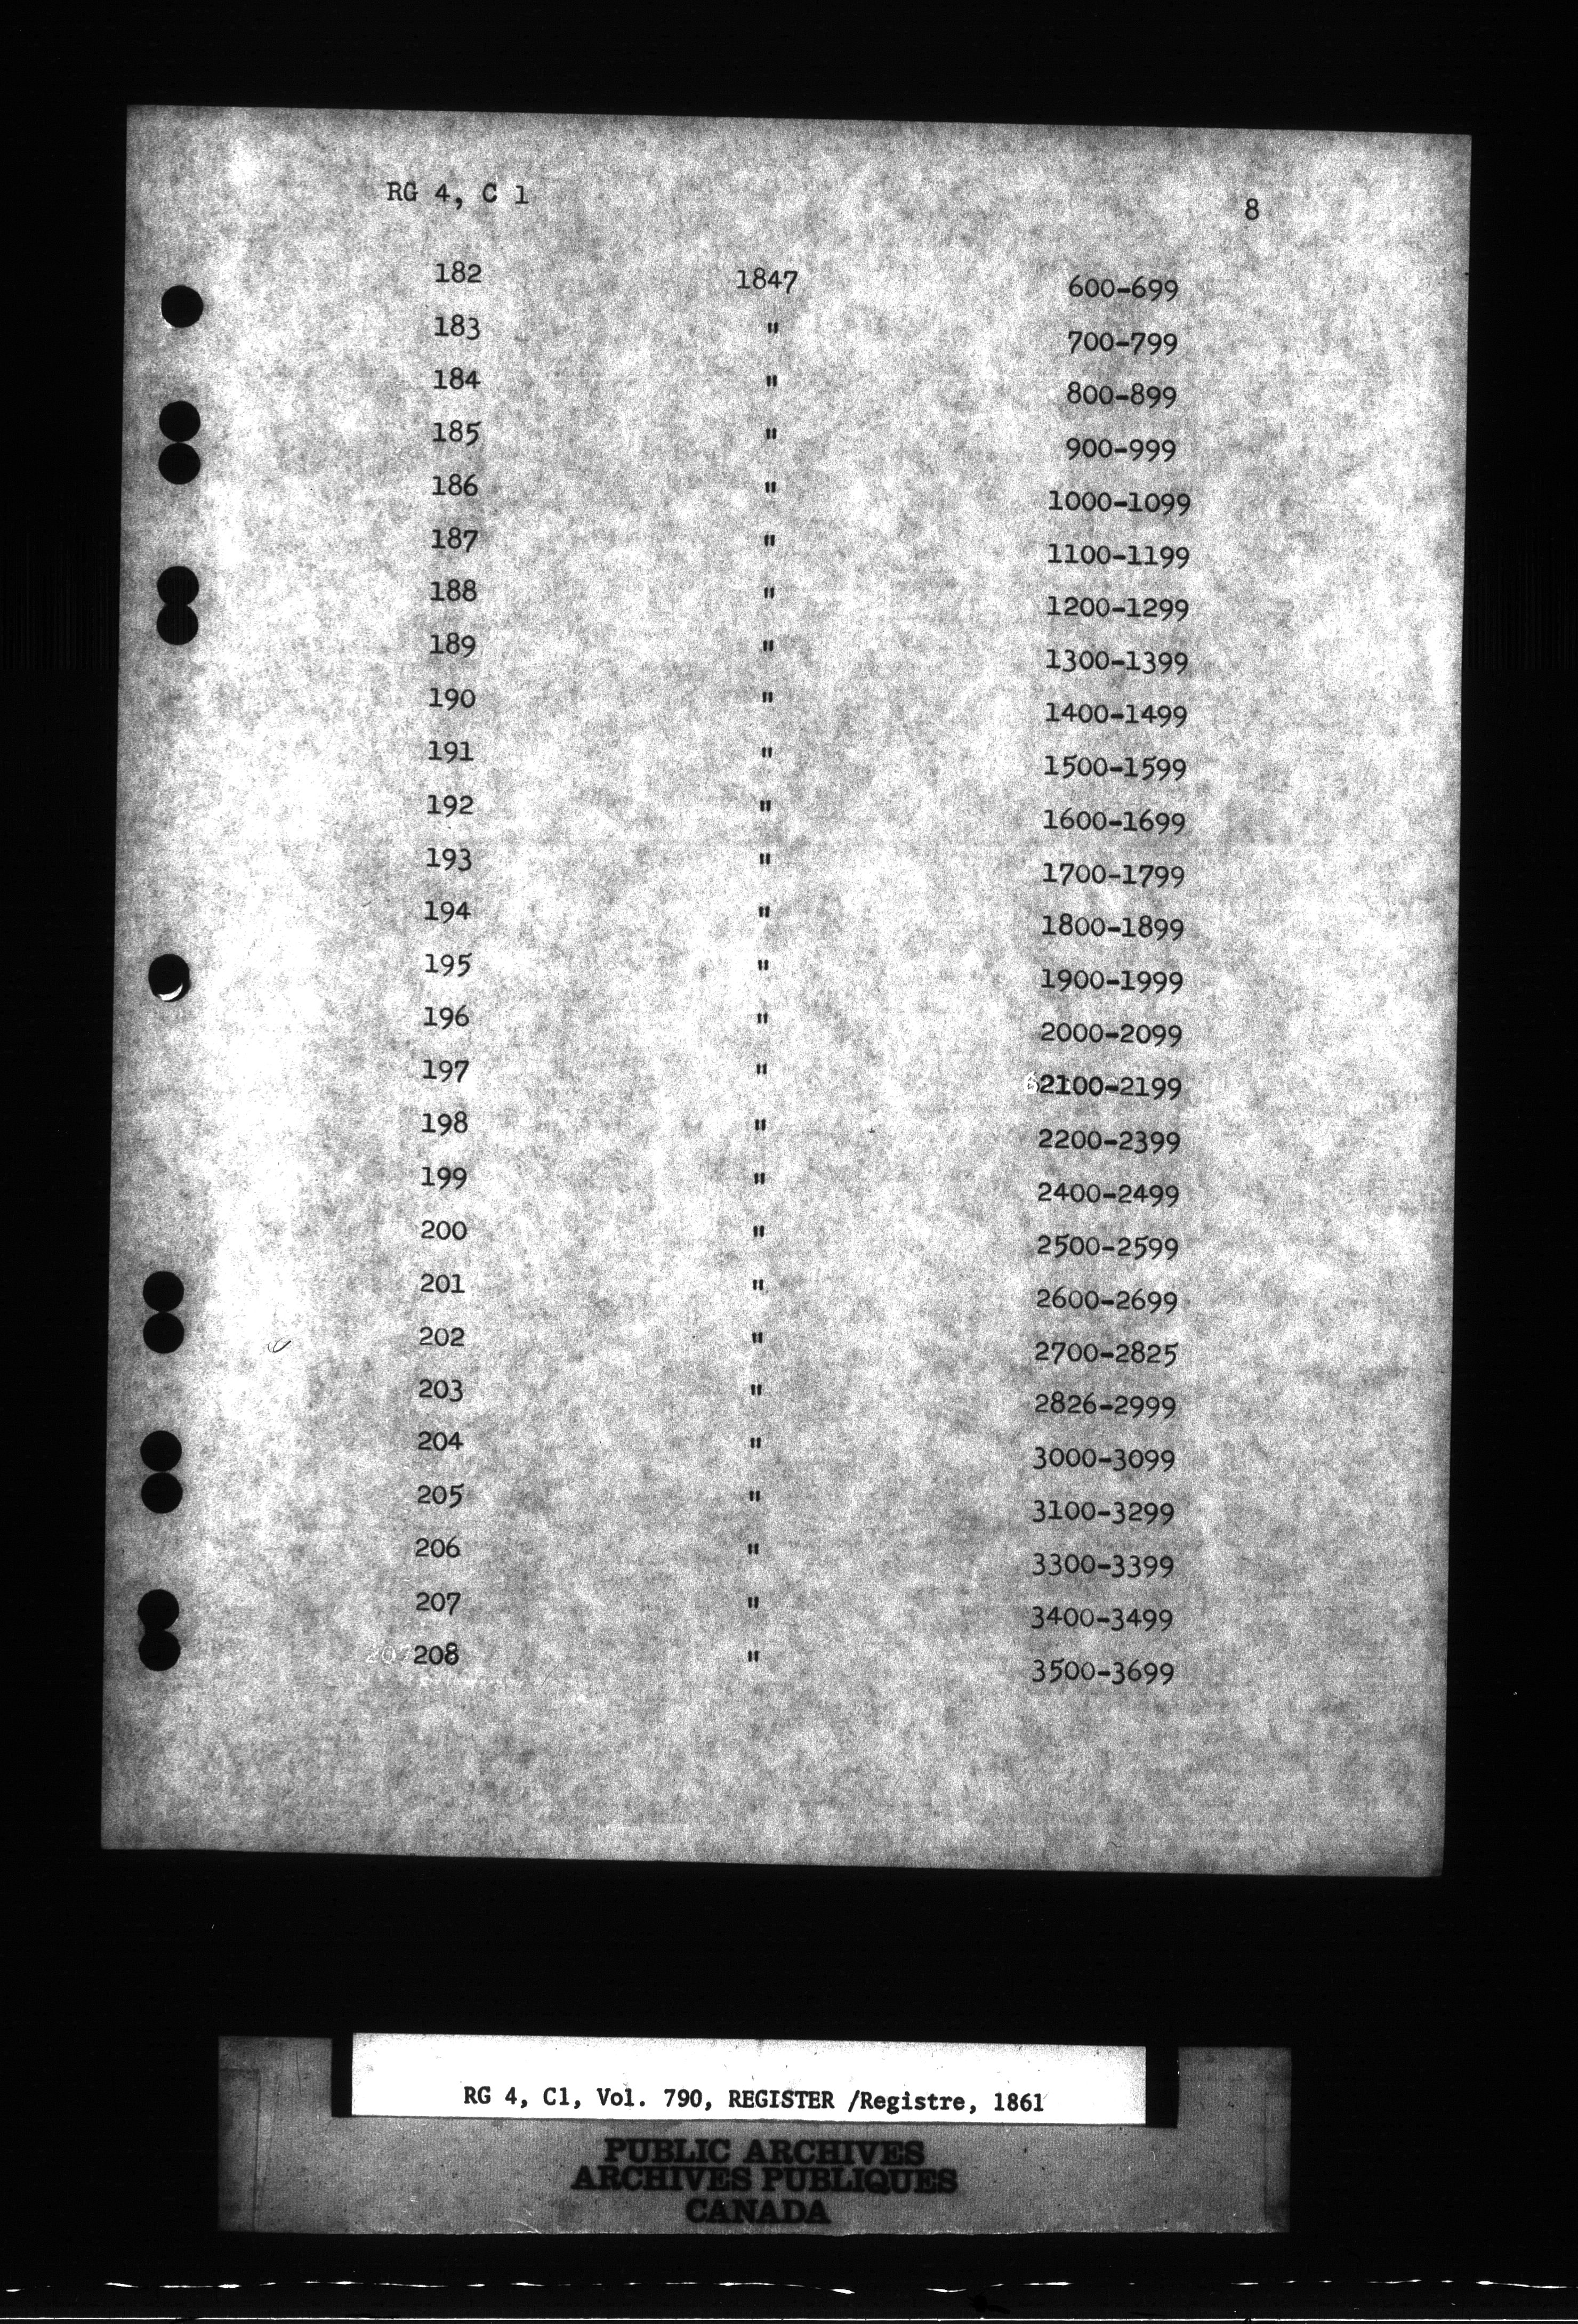 RG 4, C 1 8
182 1847 600-699
183 " 700-799
184 " 800-899
185 " 900-999
186 " 1000-1099
187 " 1100-1199
188 " 1200-1299
189 " 1300-1399
190 " 1400-1499
191 " 1500-1599
192 " 1600-1699
193 " 1700-1799
194 " 1800-1899
195 " 1900-1999
196 " 2000-2099
197 " 2100-2199
198 " 2200-2399
199 " 2400-2499
200 " 2500-2599
201 " 2600-2699
202 " 2700-2825
203 " 2826-2999
204 " 3000-3099
205 " 3100-3299
206 " 3300-3399
207 " 3400-3499
208 " 3500-3699
RG 4, C1, Vol. 790, REGISTER /Registre, 1861
PUBLIC ARCHIVES
ARCHIVES PUBLIQUES
CANADA